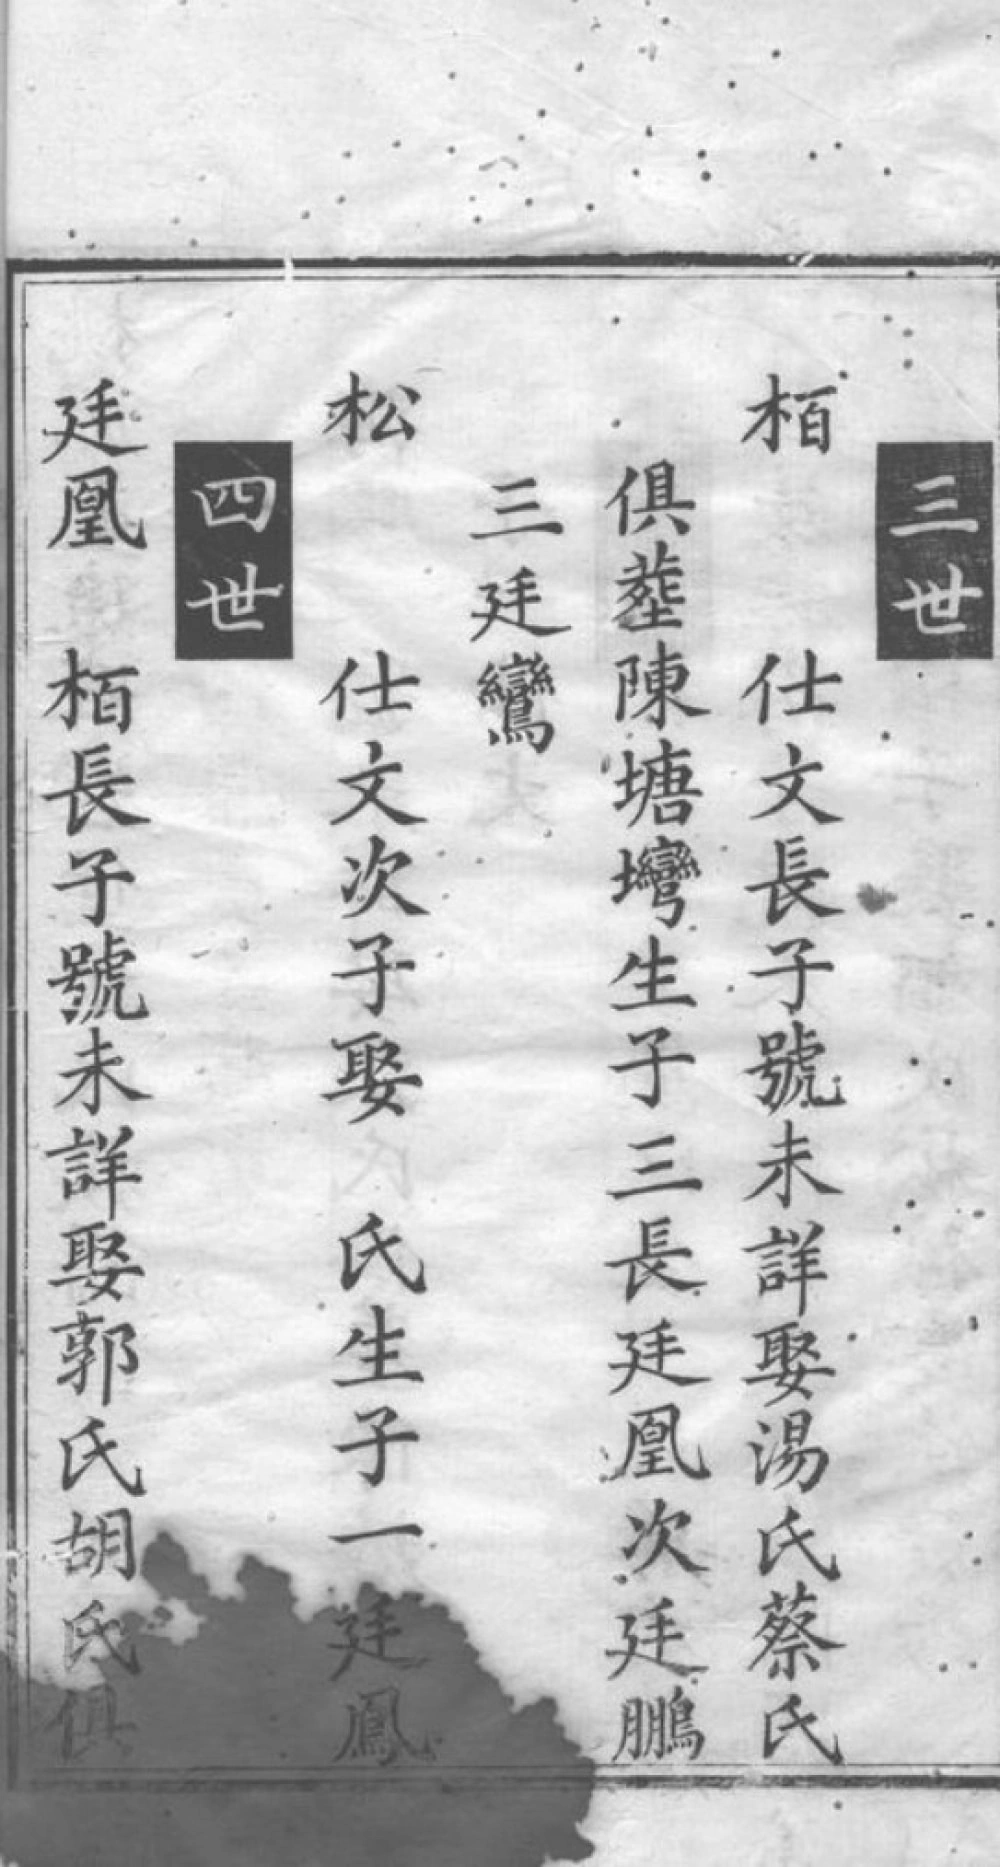 三世
栢　仕文長子號未詳娶湯氏蔡氏
俱塟陳塘壪生子三長廷凰次廷鵬
三廷鸞
松　仕文次子娶　氏生子一廷鳳
四世
廷凰　栢長子號未詳娶郭氏胡氏俱